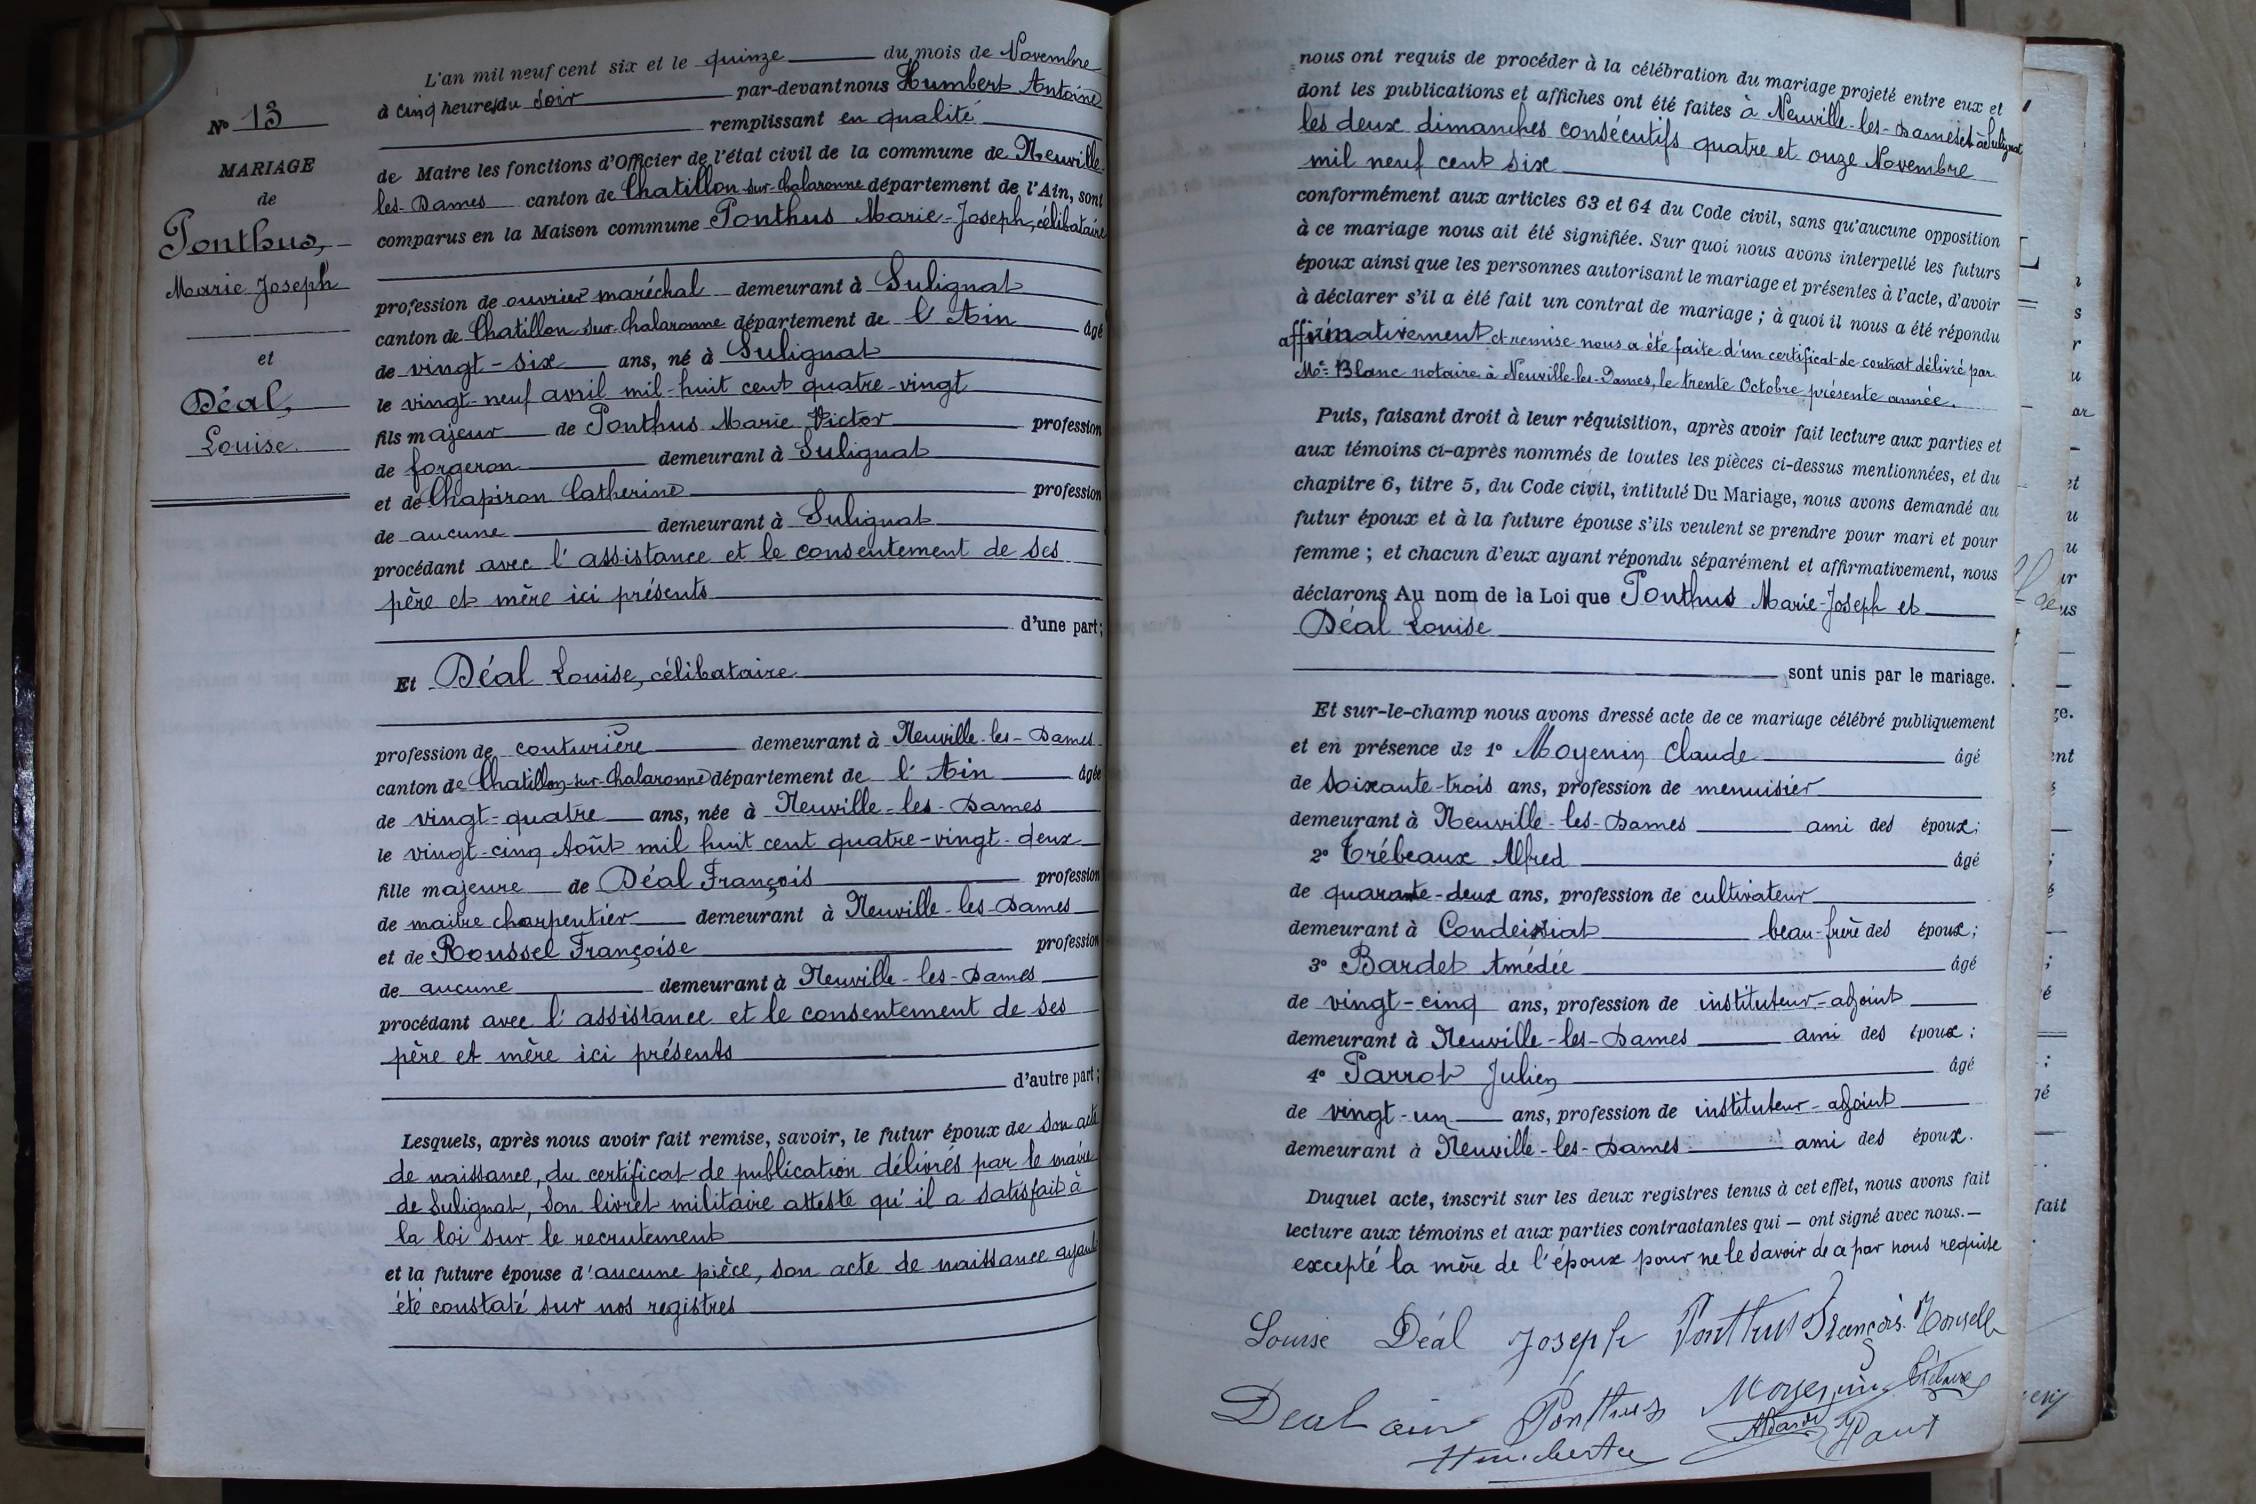 N° 13
MARIAGE
de
Ponthus,
Marie Joseph
et
Déal,
Louise
L'an mil neuf cent six et le quinze du mois de Novembre
à cinq heures du soir par-devant nous Humbert Antoine
remplissant en qualité
de Maire les fonctions d'Officier de l'état civil de la commune de Neuville-
les-Dames canton de Chatillon-sur-Chalaronne département de l'Ain, sont
comparus en la Maison commune Ponthus Marie-Joseph, célibataire
profession de ouvrier maréchal demeurant à Sulignat
canton de Chatillon-sur-Chalaronne département de l'Ain âgé
de vingt-six ans, né à Sulignat
le vingt-neuf avril mil-huit cent quatre-vingt
fils majeur de Ponthus Marie Victor profession
de forgeron demeurant à Sulignat
et de Chapiron Catherine profession
de aucune demeurant à Sulignat
procédant avec l'assistance et le consentement de ses
père et mère ici présents
d'une part;
Et Déal Louise, célibataire
profession de couturière demeurant à Neuville-les-Dames
canton de Chatillon-sur-Chalaronne département de l'Ain âgée
de vingt-quatre ans, née à Neuville-les-Dames
le vingt-cinq Août mil huit cent quatre-vingt-deux
fille majeure de Déal François profession
de maitre charpentier demeurant à Neuville-les-Dames
et de Roussel Françoise profession
de aucune demeurant à Neuville-les-Dames
procédant avec l'assistance et le consentement de ses
père et mère ici présents
d'autre part;
Lesquels, après nous avoir fait remise, savoir, le futur époux de son acte
de naissance, du certificat de publication délivrés par le maire
de Sulignat, son livret militaire atteste qu'il a satisfait à
la loi sur le recrutement
et la future épouse d'aucune pièce, son acte de naissance ayant
été constaté sur nos registres
nous ont requis de procéder à la célébration du mariage projeté entre eux et
dont les publications et affiches ont été faites à Neuville-les-Dames et à Sulignat
les deux dimanches consécutifs quatre et onze Novembre
mil neuf cent six
conformément aux articles 63 et 64 du Code civil, sans qu'aucune opposition
à ce mariage nous ait été signifiée. Sur quoi nous avons interpellé les futurs
époux ainsi que les personnes autorisant le mariage et présentes à l'acte, d'avoir
à déclarer s'il a été fait un contrat de mariage; à quoi il nous a été répondu
affirmativement et remise nous a été faite d'un certificat de contrat délivré par
Me Blanc notaire à Neuville-les-Dames, le trente Octobre présente année.
Puis, faisant droit à leur réquisition, après avoir fait lecture aux parties et
aux témoins ci-après nommés de toutes les pièces ci-dessus mentionnées, et du
chapitre 6, titre 5, du Code civil, intitulé Du Mariage, nous avons demandé au
futur époux et à la future épouse s'ils veulent se prendre pour mari et pour
femme; et chacun d'eux ayant répondu séparément et affirmativement, nous
déclarons Au nom de la Loi que Ponthus Marie-Joseph et
Déal Louise
sont unis par le mariage.
Et sur-le-champ nous avons dressé acte de ce mariage célébré publiquement
et en présence de 1° Moyenin Claude âgé
de soixante-trois ans, profession de menuisier
demeurant à Neuville-les-Dames ami des époux;
2° Trébeaux Alfred âgé
de quarante-deux ans, profession de cultivateur
demeurant à Condeissiat beau-frère des époux;
3° Bardet Amédée âgé
de vingt-cinq ans, profession de instituteur-adjoint
demeurant à Neuville-les-Dames ami des époux;
4° Parrot Julien âgé
de vingt-un ans, profession de instituteur-adjoint
demeurant à Neuville-les-Dames ami des époux.
Duquel acte, inscrit sur les deux registres tenus à cet effet, nous avons fait
lecture aux témoins et aux parties contractantes qui — ont signé avec nous. —
excepté la mère de l'époux pour ne le savoir de ce par nous requise
Louise Déal Joseph Ponthus
Deal Ponthus Moyenin